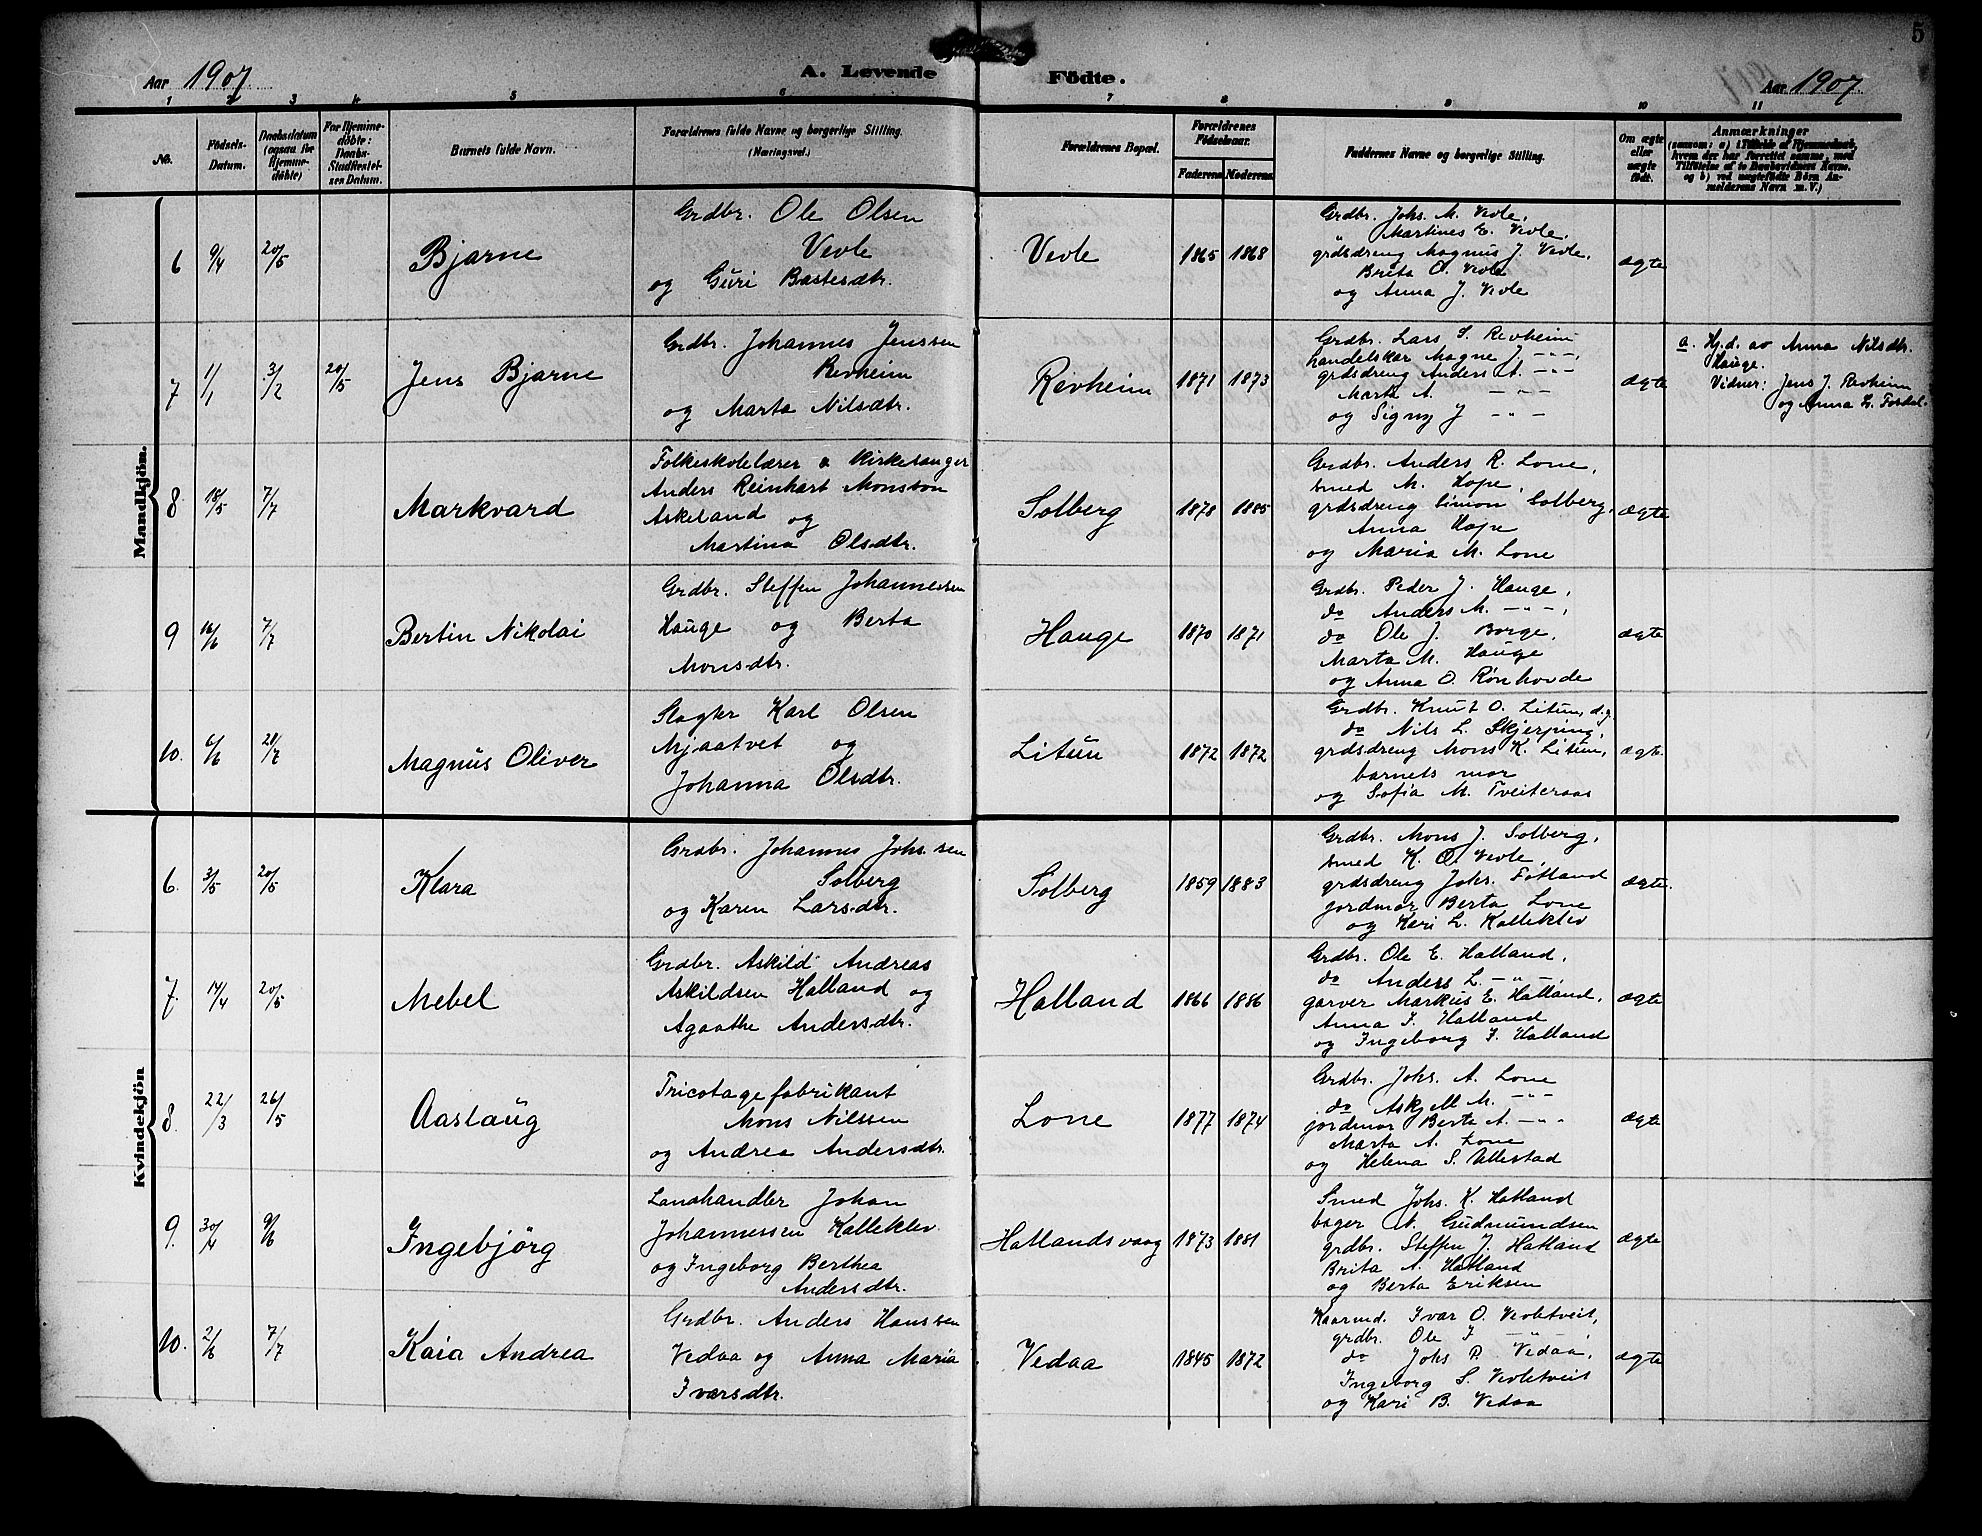 5
Aar 1907
A. Levende Födte.
Aar 1907
1 2 3 4 5 6 7 8 9 10 11
No.
Födsels-
Datum.
Daabsdatum
(ogsaa for
Hjemme-
döbte)
For Hjemme-
döbte:
Daabs-
Stadfæstel-
ses Datum.
Barnets fulde Navn.
Forældrenes fulde Navne og borgerlige Stilling.
(Næringsvei.)
Forældrenes Bopæl.
Forældrenes
Födselsaar.
Faderens Moderens
Faddernes Navne og borgerlige Stilling.
Om ægte
eller
uægte
födt.
Anmærkninger
(saasom: a) i Tilfælde af Hjemmedaab,
hvem der har forrettet samme, med
Tilföielse af to Daabsvidners Navne.
og b) ved uægtefödte Börn An-
melderens Navn m. V.)
Mandkjön.
6 9/4 20/5 Bjarne
Grdbr. Ole Olsen
Vevle
og Guri Bastesdtr.
Vevle 1865 1868
Grdbr. Johs. M. Vevle,
Martines E. Vevle,
grdsdreng Magnus J. Vevle,
Brita O. Vevle
og Anna J. Vevle
ægte
7 1/1 3/2 20/5 Jens Bjarne
Grdbr. Johannes Jenssen
Revheim
og Marta Nilsdtr.
Revheim 1871 1873
Grdbr. Lars S. Revheim
handelskar Magne J. -"-,
grdsdreng Anders A. -"-
Marta A. -"-
og Signy J -"-
ægte
a. Hj.d. av Anna Nilsdtr.
Hauge.
Vidner: Jens J. Revheim
og Anna L. Fosdal.
8 18/5 7/7 Markvard
Folkeskolelærer & Kirkesanger
Anders Reinhart Monsson
Askeland og
Martina Olsdtr.
Solberg 1878 1885
Grdbr. Anders R. Lone,
smed M. Hope,
grdsdreng Simon Solberg,
Anna Hope
og Maria M. Lone
ægte
9 16/6 7/7 Bertin Nikolai
Grdbr. Steffen Johannessen
Hauge og Berta
Monsdtr.
Hauge 1870 1871
Grdbr. Peder J. Hauge,
do Anders M. -"-,
do Ole J. Borge,
Marta M. Hauge
og Anna O. Rønhovde
ægte
10. 6/6 28/7 Magnus Oliver
Slagter Karl Olsen
Mjaatvet og
Johanna Olsdtr.
Litun 1872 1872
Grdbr. Knut O. Litun, d.y.
do Nils L. Skjerping,
grdsdreng Mons K. Litun,
barnets mor
og Sofia M. Tveiteraas
ægte.
Kvindekjön
6. 3/5 20/5 Klara
Grdbr. Johannes Johs.sen
Solberg
og Karen Larsdtr.
Solberg 1859 1883
Grdbr. Mons J. Solberg,
smed K. O. Vevle,
grdsdreng Johs. Fotland
jordmor Berta Lone
og Kari L. Kalleklev
ægte.
7. 14/4 20/5 Mebel
Grdbr. Askild Andreas
Askildsen Hatland og
Agaathe Andersdtr.
Hatland 1866 1886
Grdbr. Ole E. Hatland,
do Anders L. -"-,
garver Markus E. Hatland,
Anna I. Hatland
og Ingeborg I. Hatland
ægte
8. 22/3 26/5 Aaslaug
Tricotagefabrikant
Mons Nilssen
og Andrea Andersdtr.
Lone 1877 1874
Grdbr. Johs. A. Lone
do Askjell M. -"-
jordmor Berta A. -"-
Marta A. Lone
og Helena S. Ullestad
ægte
9. 30/4 9/6 Ingebjörg
Landhandler Johan
Johannessen Kalleklev
og Ingeborg Berthea
Andersdtr.
Hatlandsvaag 1873 1881
Smed Johs. K. Hatland
bager A. Gudmundsen
grdbr. Steffen J. Hatland
Brita A. Hatland
og Berta Eriksen
ægte
10. 2/6 7/7 Kaia Andrea
Grdbr. Anders Hanssen
Vedaa og Anna Maria
Ivarsdtr.
Vedaa 1845 1872
Kaarmd. Ivar O. Vevletveit,
grdbr. Ole I -"-
do Johs P. Vedaa,
Ingeborg S. Vevletveit
og Kari B. Vedaa
ægte